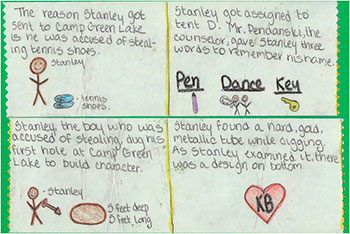 The reason Stanley got
sent to Camp Green Lake
is he was accused of steal-
ing tennis shoes.
Stanley
-tennis
shoes.
Stanley got assigned to
tent D. Mr. Pendanski, the
counselor, gave Stanley three
words to remember his name.
Pen Dance Key
Stanley the boy who was
accused of stealing, dug his
first hole at Camp Green
Lake to build character.
-Stanley
5 feet deep
5 feet long
Stanley found a hard, gold,
metallic tube while digging.
As Stanley examined it, there
was a design on bottom.
KB